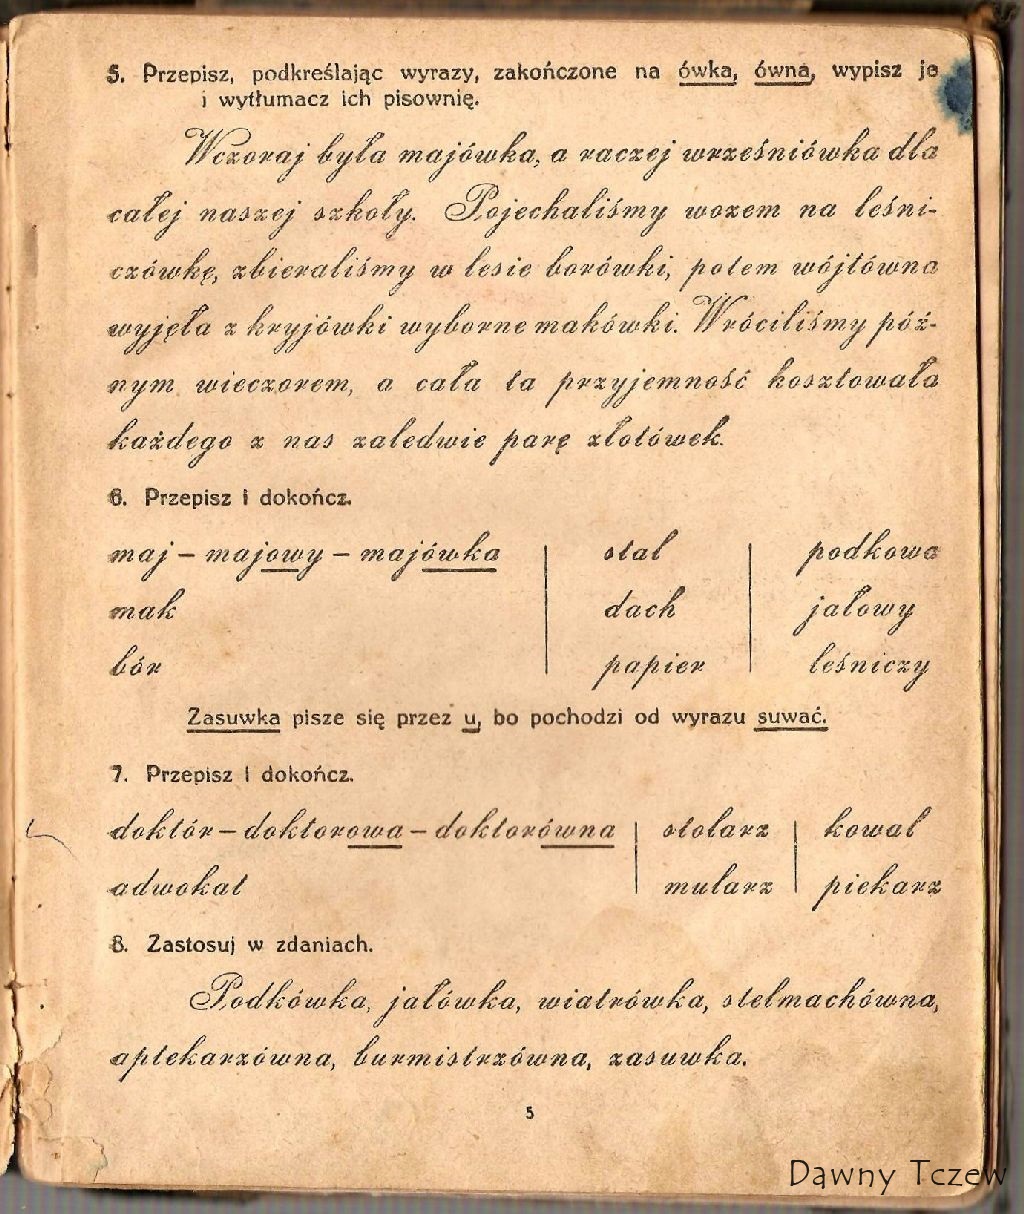 5. Przepisz, podkreślając wyrazy, zakończone na ówka, ówna, wypisz je
i wytłumacz ich pisownię.
Wczoraj była majówka, a raczej wrześniówka dla
całej naszej szkoły. Pojechaliśmy wozem na leśni-
czówkę, zbieraliśmy w lesie borówki, potem wójtówna
wyjęła z kryjówki wyborne makówki. Wróciliśmy póź-
nym wieczorem, a cała ta przyjemność kosztowała
każdego z nas zaledwie parę złotówek.
6. Przepisz i dokończ.
maj – majowy – majówka | stal | podkowa
mak dach jałowy
bór papier leśniczy
Zasuwka pisze się przez u, bo pochodzi od wyrazu suwać.
7. Przepisz i dokończ.
doktór – doktorowa – doktorówna | stolarz | kowal
adwokat mularz piekarz
8. Zastosuj w zdaniach.
Podkówka, jałówka, wiatrówka, stelmachówna,
aptekarzówna, burmistrzówna, zasuwka.
5
Dawny Tczew